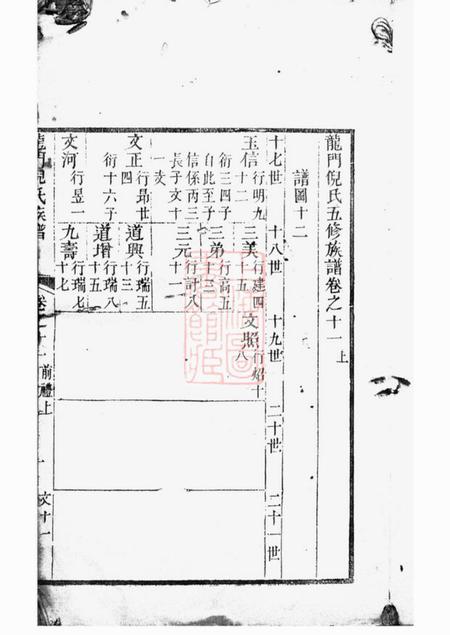 龍門倪氏五修族譜卷之十一上
譜圖十二
十七世 十八世 十九世 二十世 二十一世
玉信行明九十二
三美行建四十五
文照行紹十八
衍三四子
三弟行高五十三
自此至子
信係丙三
三元行計八十一
長子文十
一文
文正行昂世四
道興行瑞五十三
衍十六子
道增行瑞八十五
文河行昱一
九壽行瑞七十七
龍門倪氏族譜 卷之十一前禮上 文十一